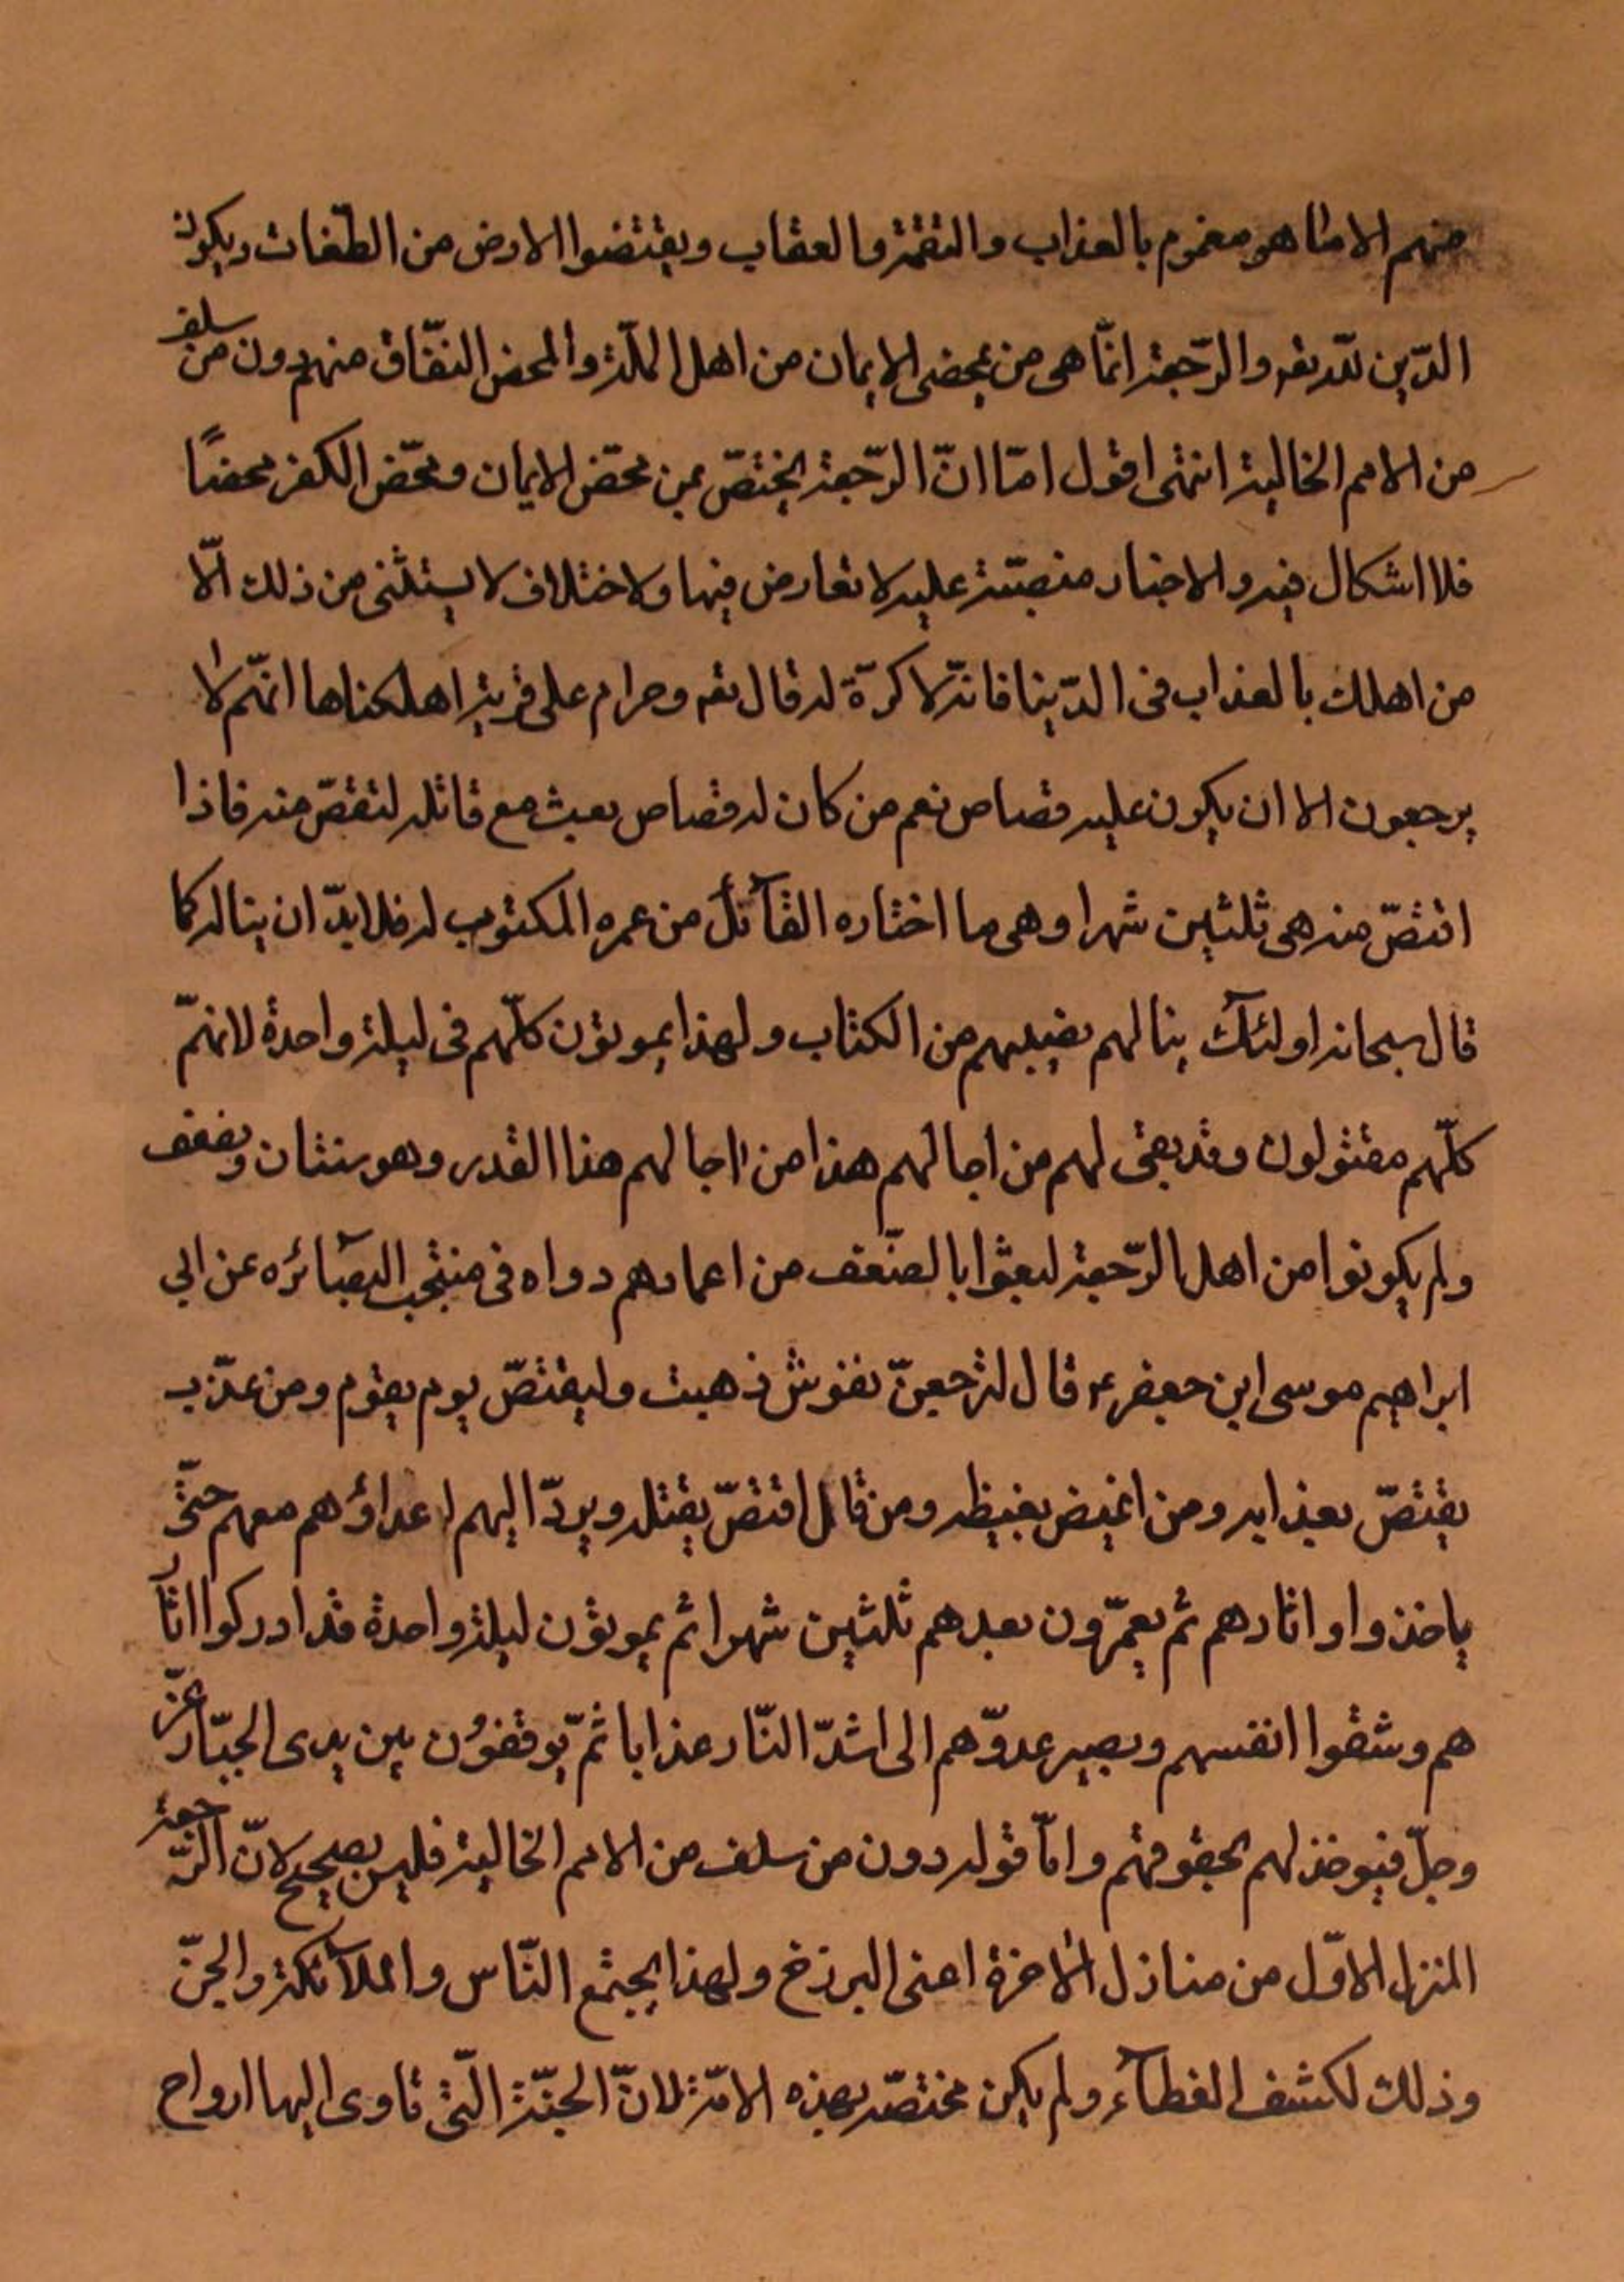 منهم الا منا هو مغموم بالعذاب والنقمة والعقاب ويقتضوا الارض من الطّغات ويكون
الدّين للّه تعه والرّجعة انّما هى من يمحضى الايمان من اهل الملّة والمحض النفّاق منهم دون من سلف
من الامم الخالية انتهى اقول امّا انّ الرّجعة يختصّ بمن محّض الايمان ومحّض الكفر محضًا
فلا اشكال فيه والاخبار منصبّة عليه لا تعارض فيها ولا ختلاف لا يستثنى من ذلك الّا
من اهلك بالعذاب فى الدّينا فانّه لا كرّة له قال تعه وحرام على قرية اهلكناها انهّم لا
يرجعون الا ان يكون عليه قصاص نعم من كان له قصاص بعث مع قاتله لتقصّ منه فاذا
اقتصّ منه هى ثلثين شهرا وهى ما اختاره القآئل من عمره المكتوب له فلا بدّ ان يناله كما
قال سبحانه اولئك ينالهم نصيبهم من الكتاب ولهذا يموتون كلّهم فى ليلة واحدة لانهّم
كلّهم مقتولون وقد بقى لهم من اجالهم هذا من اجالهم هذا القدر وهو سنتان ونصف
ولم يكونوا من اهل الرّجعة لبعثوا بالضّعف من اعمارهم رواه فى منتجب البصآئره عن ابى
ابراهيم موسى ابن جعفر ع قال لترجعنّ نفوش ذهبت وليقتصّ يوم يقوم ومن عذّب
يقتصّ بعذابه ومن اغيض بغيظه ومن قاتل اقتصّ يقتله ويردّ اليهم اعداؤهم معهم حتّى
ياخذوا اوثارهم ثم يعمّرون بعدهم ثلثين شهرا ثم يموتون ليلة واحدة قد ادركوا اثار
هم وشفوا انفسهم ويصير عدوّهم الى اشدّ النّار عذابا ثمّ يوقفون بين يدى الجبّار عزّ
وجلّ فيوخذ لهم بحقوقهم وامّا قوله دون من سلف من الامم الخالية فليس بصحيح لانّ الرّجعة
المنزل الاوّل من منازل الاخرة اعنى البرزخ ولهذا يجتمع النّاس والملآئكة والجنّ
وذلك لكشف الغطآء ولم يكن مختصّه بهذه الامّة لانّ الجنّة الّتى تاوى اليها ارواح